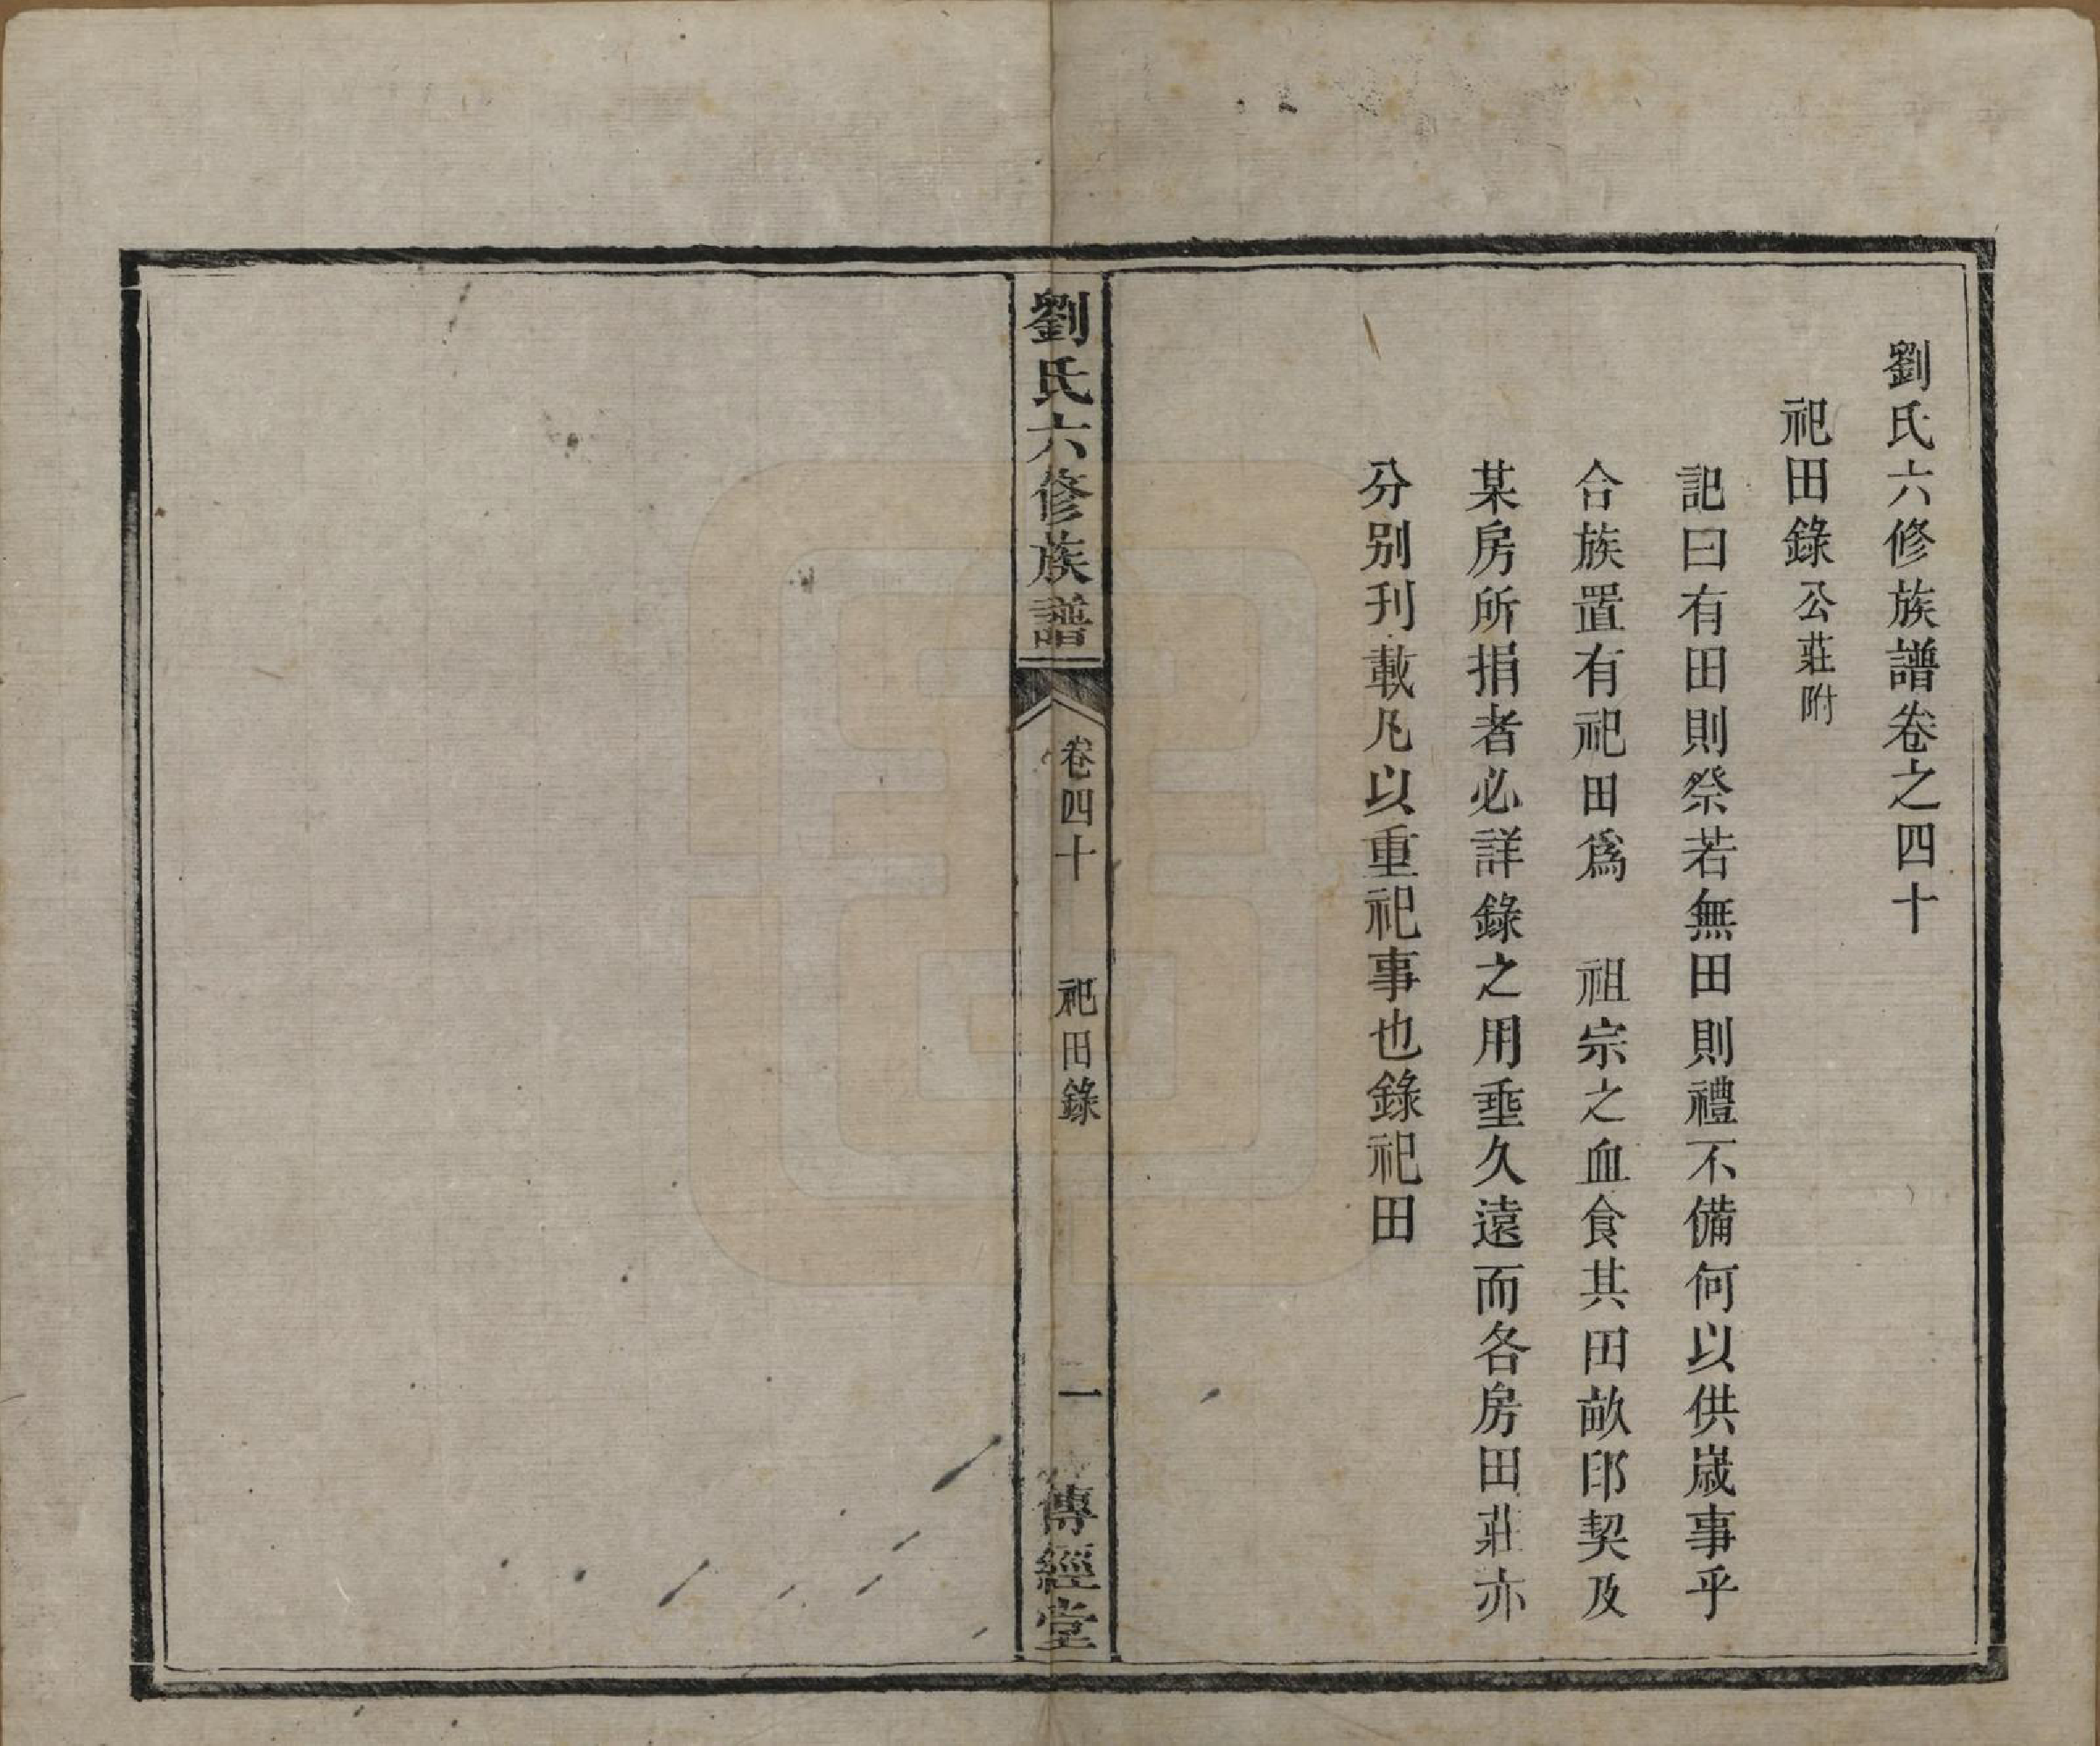 劉氏六修族譜卷之四十
祀田錄公莊附
記曰有田則祭若無田則禮不備何以供嵗事乎
合族置有祀田爲　祖宗之血食其田畝印契及
某房所捐者必詳錄之用垂久遠而各房田莊亦
分別刊載凡以重祀事也錄祀田
劉氏六修族譜
卷四十　祀田錄
一
傳經堂